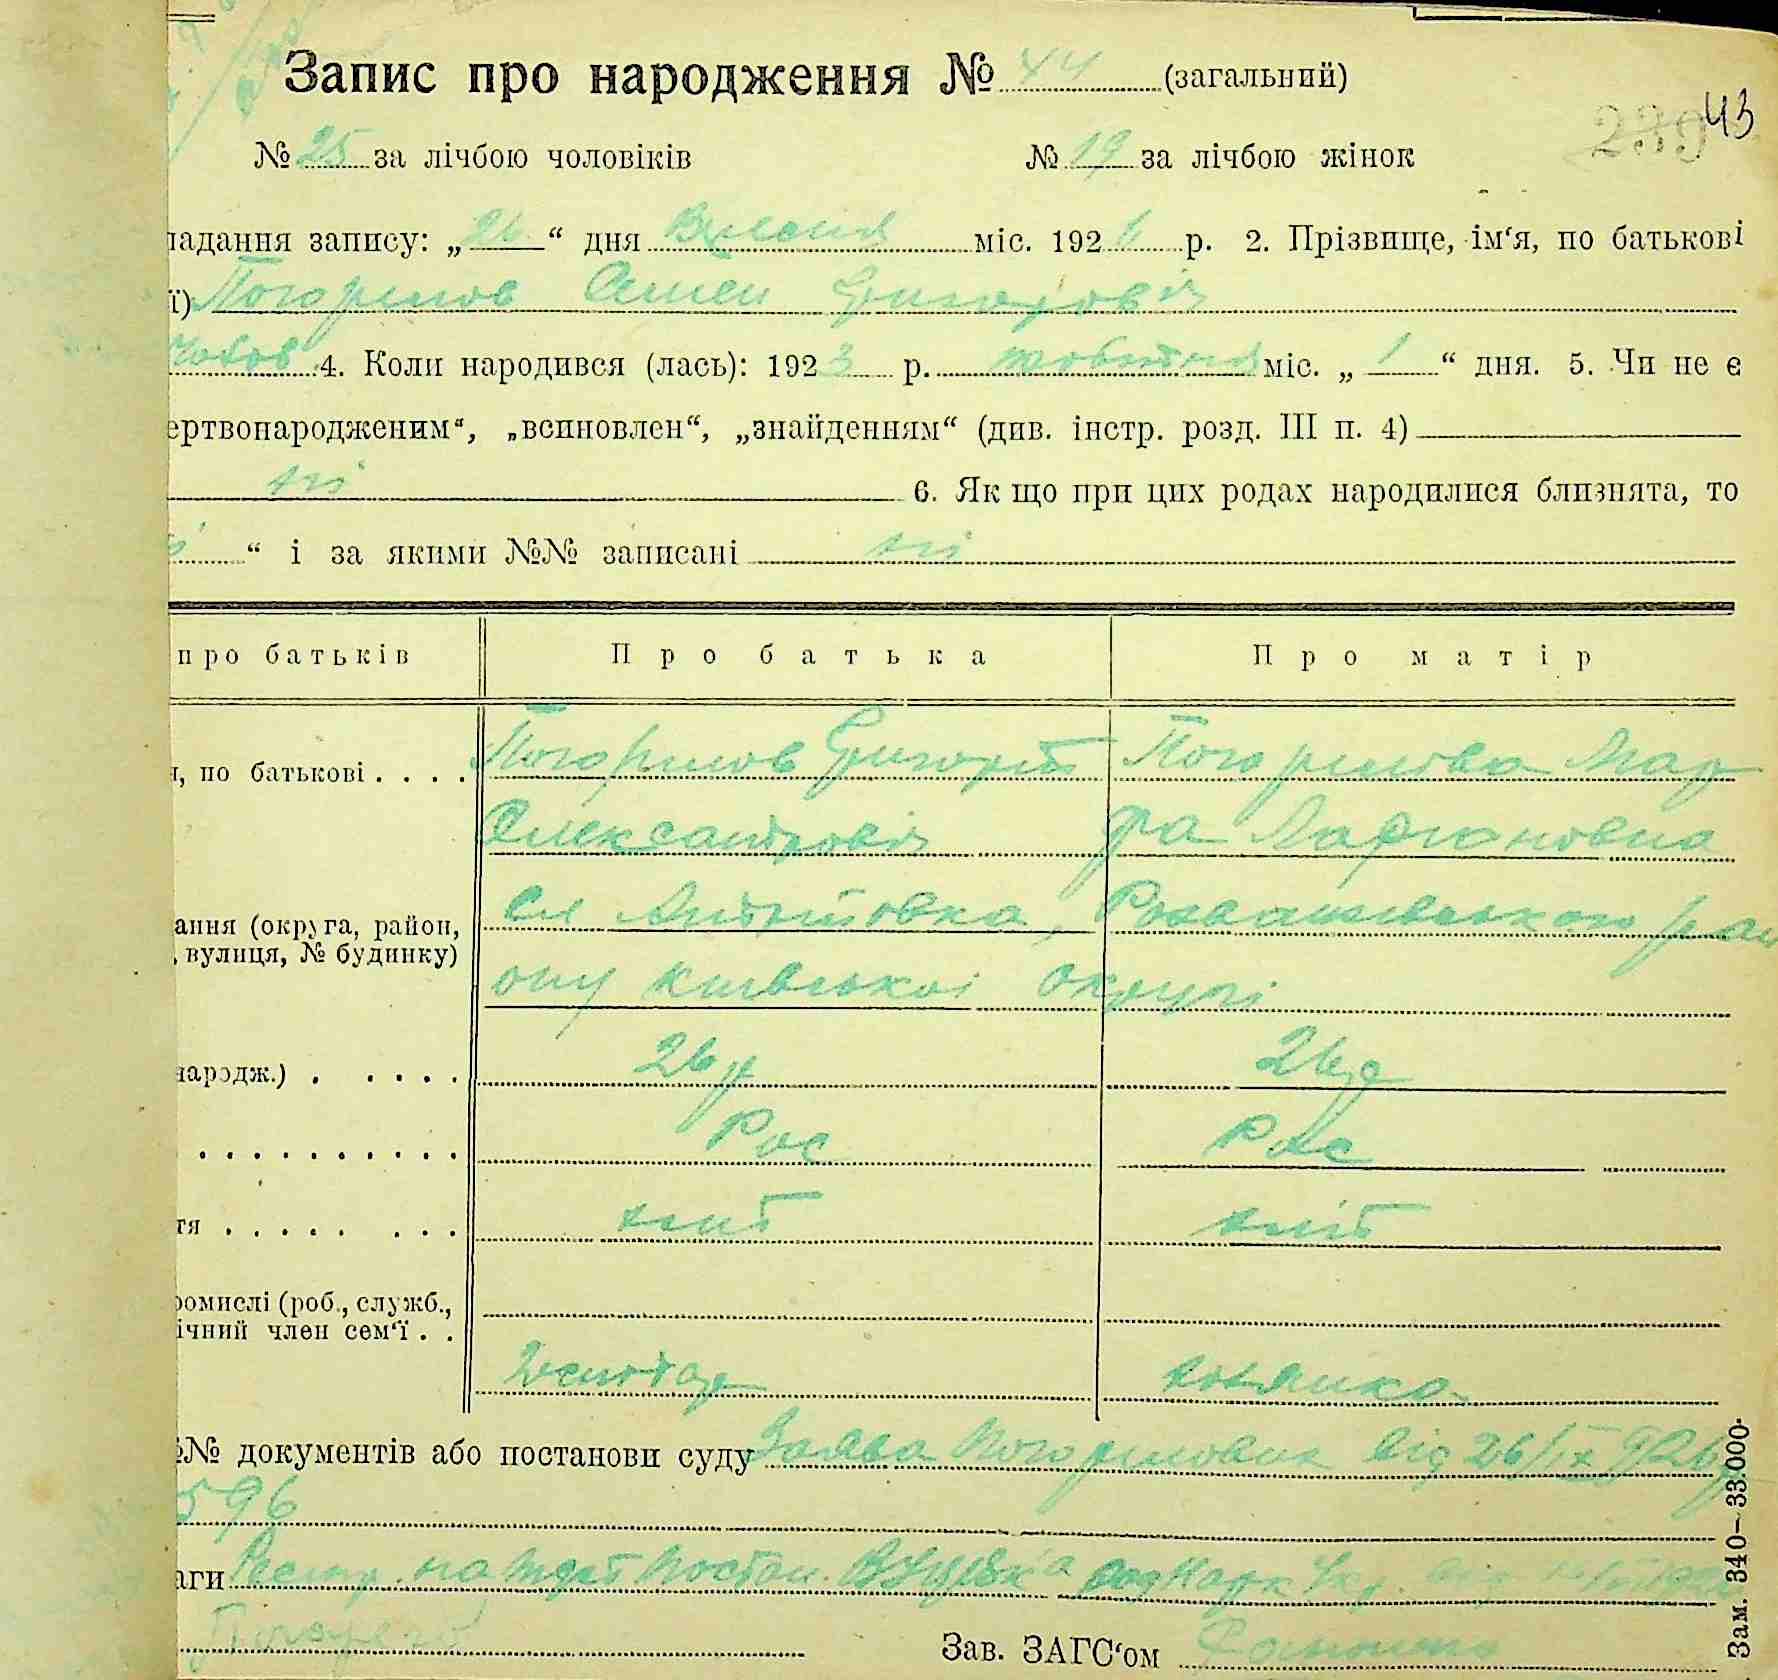 Запис про народження № 44 (загальний)
239 43
№ 25 за лічбою чоловіків № 19 за лічбою жінок
ладання запису: „ 26 “ дня Вересня міс. 192 р. 2. Прізвище, ім‘я, по батькові
ї) Погорилов Семен Григорович
4. Коли народився (лась): 192 3 р. жовтня міс. „ 1 “ дня. 5. Чи не є
ертвонародженим“, „всиновлен“, „знайденням“ (див. інстр. розд. III п. 4)
ні 6. Як що при цих родах народилися близнята, то
“ і за якими №№ записані ні
про батьків Про батька Про матір
, по батькові . . . . Погорилов Григорій Погорилова Мар
Олександрович
ання (округа, район, сл Антонівка, району
, вулиця, № будинку)
ону Київської округи
народж.) . . . . . 26 р 26 р
. . . . . . . . . . . Рос Рос
тя . . . . . . . . . пит піт
ромислі (роб., служб.,
ічний член сем‘ї . .
Господар
№№ документів або постанови суду Заява Погорилова від 26/IX 1926 р
596
аги на Постан. ВУЦВК‘а Укр.
Зав. ЗАГС‘ом
Зам. 340–33.000.